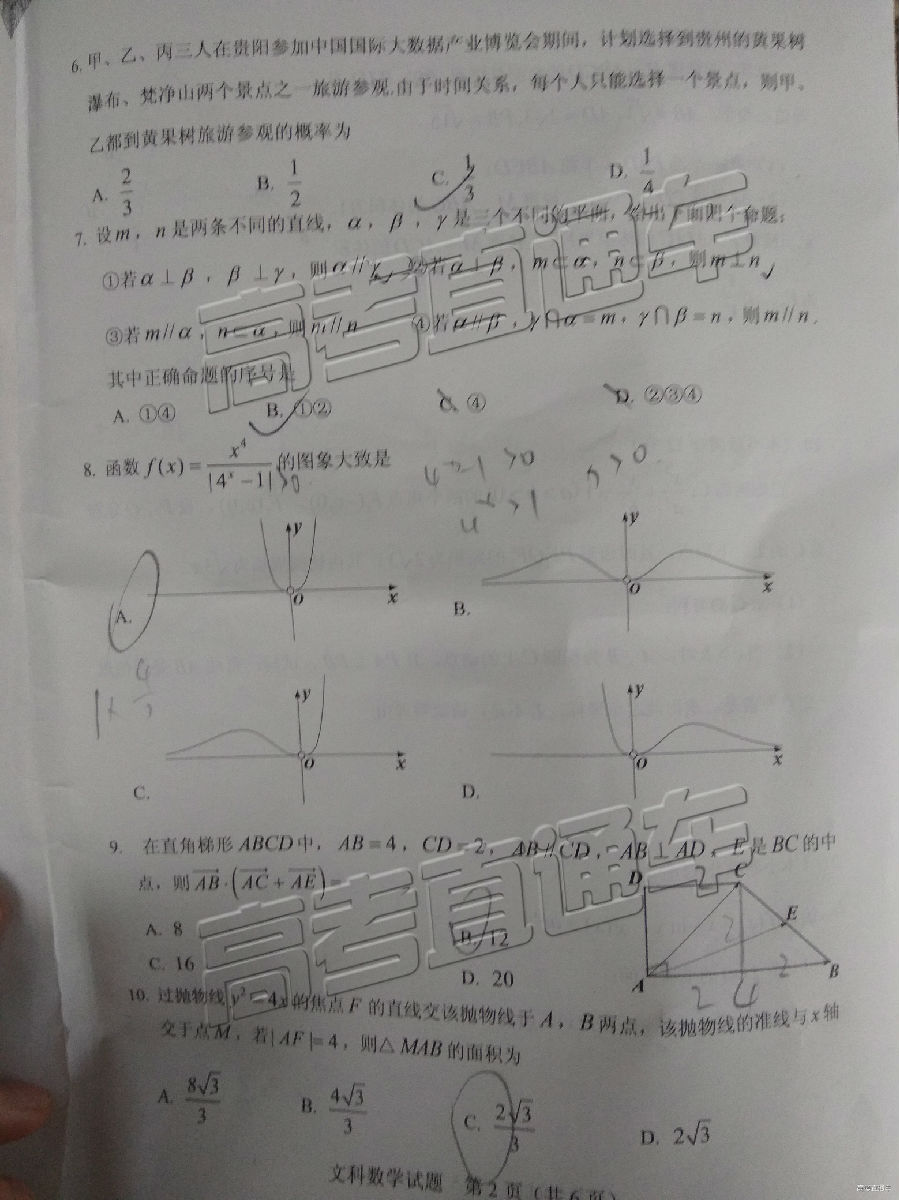 6.甲、乙、丙三人在贵阳参加中国国际大数据产业博览会期间，计划选择到贵州的黄果树
瀑布、梵净山两个景点之一旅游参观.由于时间关系，每个人只能选择一个景点，则甲。
乙都到黄果树旅游参观的概率为
A. 2/3 B. 1/2 C. 1/3 D. 1/4
7. 设m，n是两条不同的直线，α，β，γ是三个不同的平面，给出下面四个命题：
①若α⊥β，β⊥γ，则α//γ ②若α⊥β，m⊂α，n⊂β，则m⊥n
③若m//α，n⊂α，则m//n ④若α//β，γ∩α=m，γ∩β=n，则m//n.
其中正确命题的序号是
A. ①④ B. ①② C. ④ D. ②③④
8. 函数f(x)=x⁴/|4ˣ-1|的图象大致是
>0
4ˣ-1>0
4ˣ>1
>0
y
O
x
A.
y
O
x
B.
y
O
x
C.
y
O
x
D.
9. 在直角梯形ABCD中，AB=4，CD=2，AB//CD，AB⊥AD，E是BC的中
点，则AB·(AC+AE)=
A. 8 B. 12
C. 16 D. 20
D 2 C
E
2
A B
2 4 2
10. 过抛物线y²=4x的焦点F的直线交该抛物线于A，B两点，该抛物线的准线与x轴
交于点M，若|AF|=4，则△MAB的面积为
A. 8√3/3 B. 4√3/3 C. 2√3/3 D. 2√3
文科数学试题 第2页（共6页）
高考直通车
高考直通车